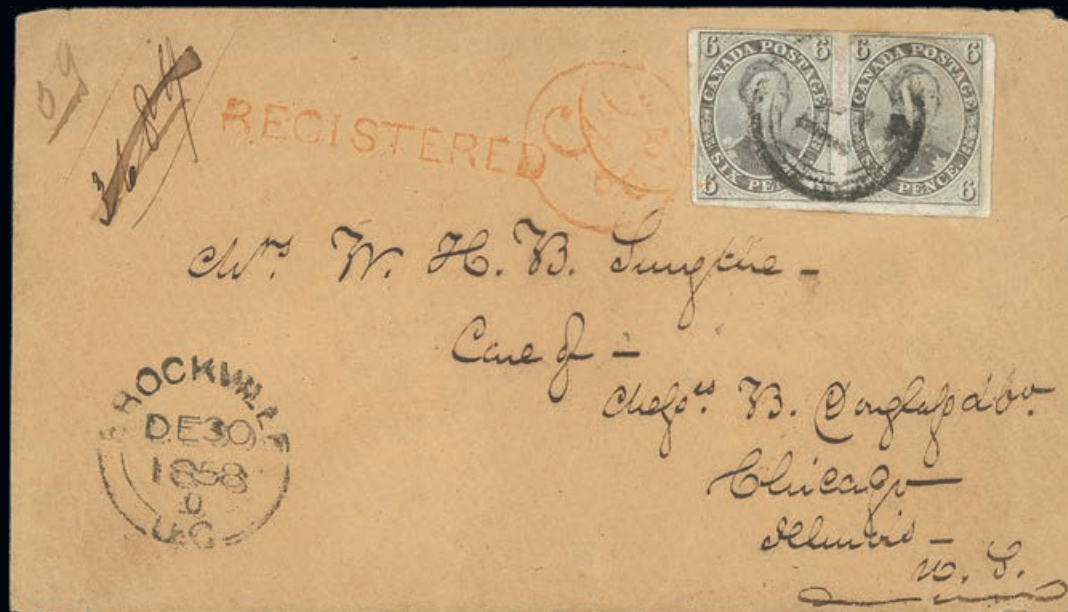 REGISTERED
6 CANADA POSTAGE 6
6 SIX PENCE
6 CANADA POSTAGE 6
SIX PENCE 6
Mrs. W. H. B.
Care of -
Messrs B. Douglass & Co.
Chicago
Illinois -
U. S.
BROCKVILLE
DE 30
1858
U.C.